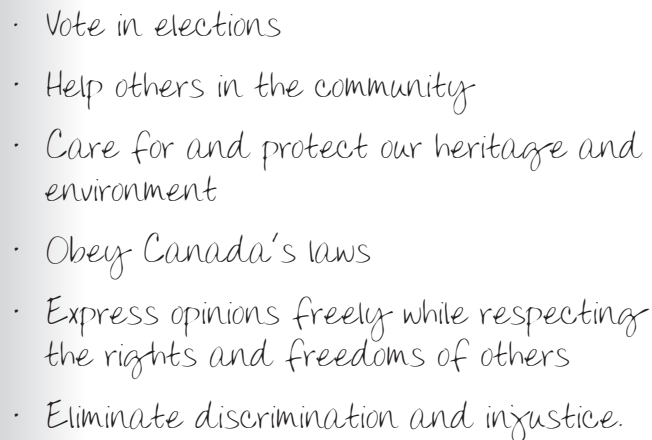 · Vote in elections
· Help others in the community
· Care for and protect our heritage and
environment
· Obey Canada's laws
· Express opinions freely while respecting
the rights and freedoms of others
· Eliminate discrimination and injustice.